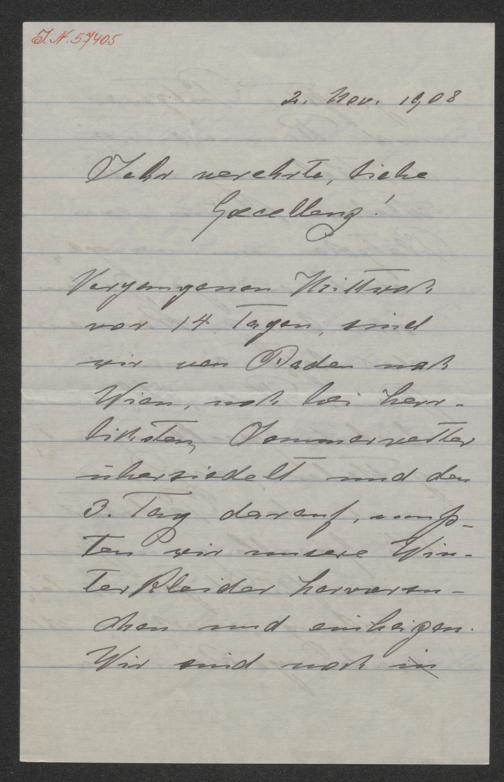 I.N. 57405
2. Nov. 1908
Sehr verehrte, liebe
Excellenz!
Vergangenen Mittwoch
vor 14 Tagen, sind
wir von Baden nach
Wien, noch bei herr-
lichsten, Sommerwetter
übersiedelt und den
3. Tag darauf, muß-
ten wir unsere Win-
terkleider hervorsu-
chen und einheizen.
Wir sind noch in